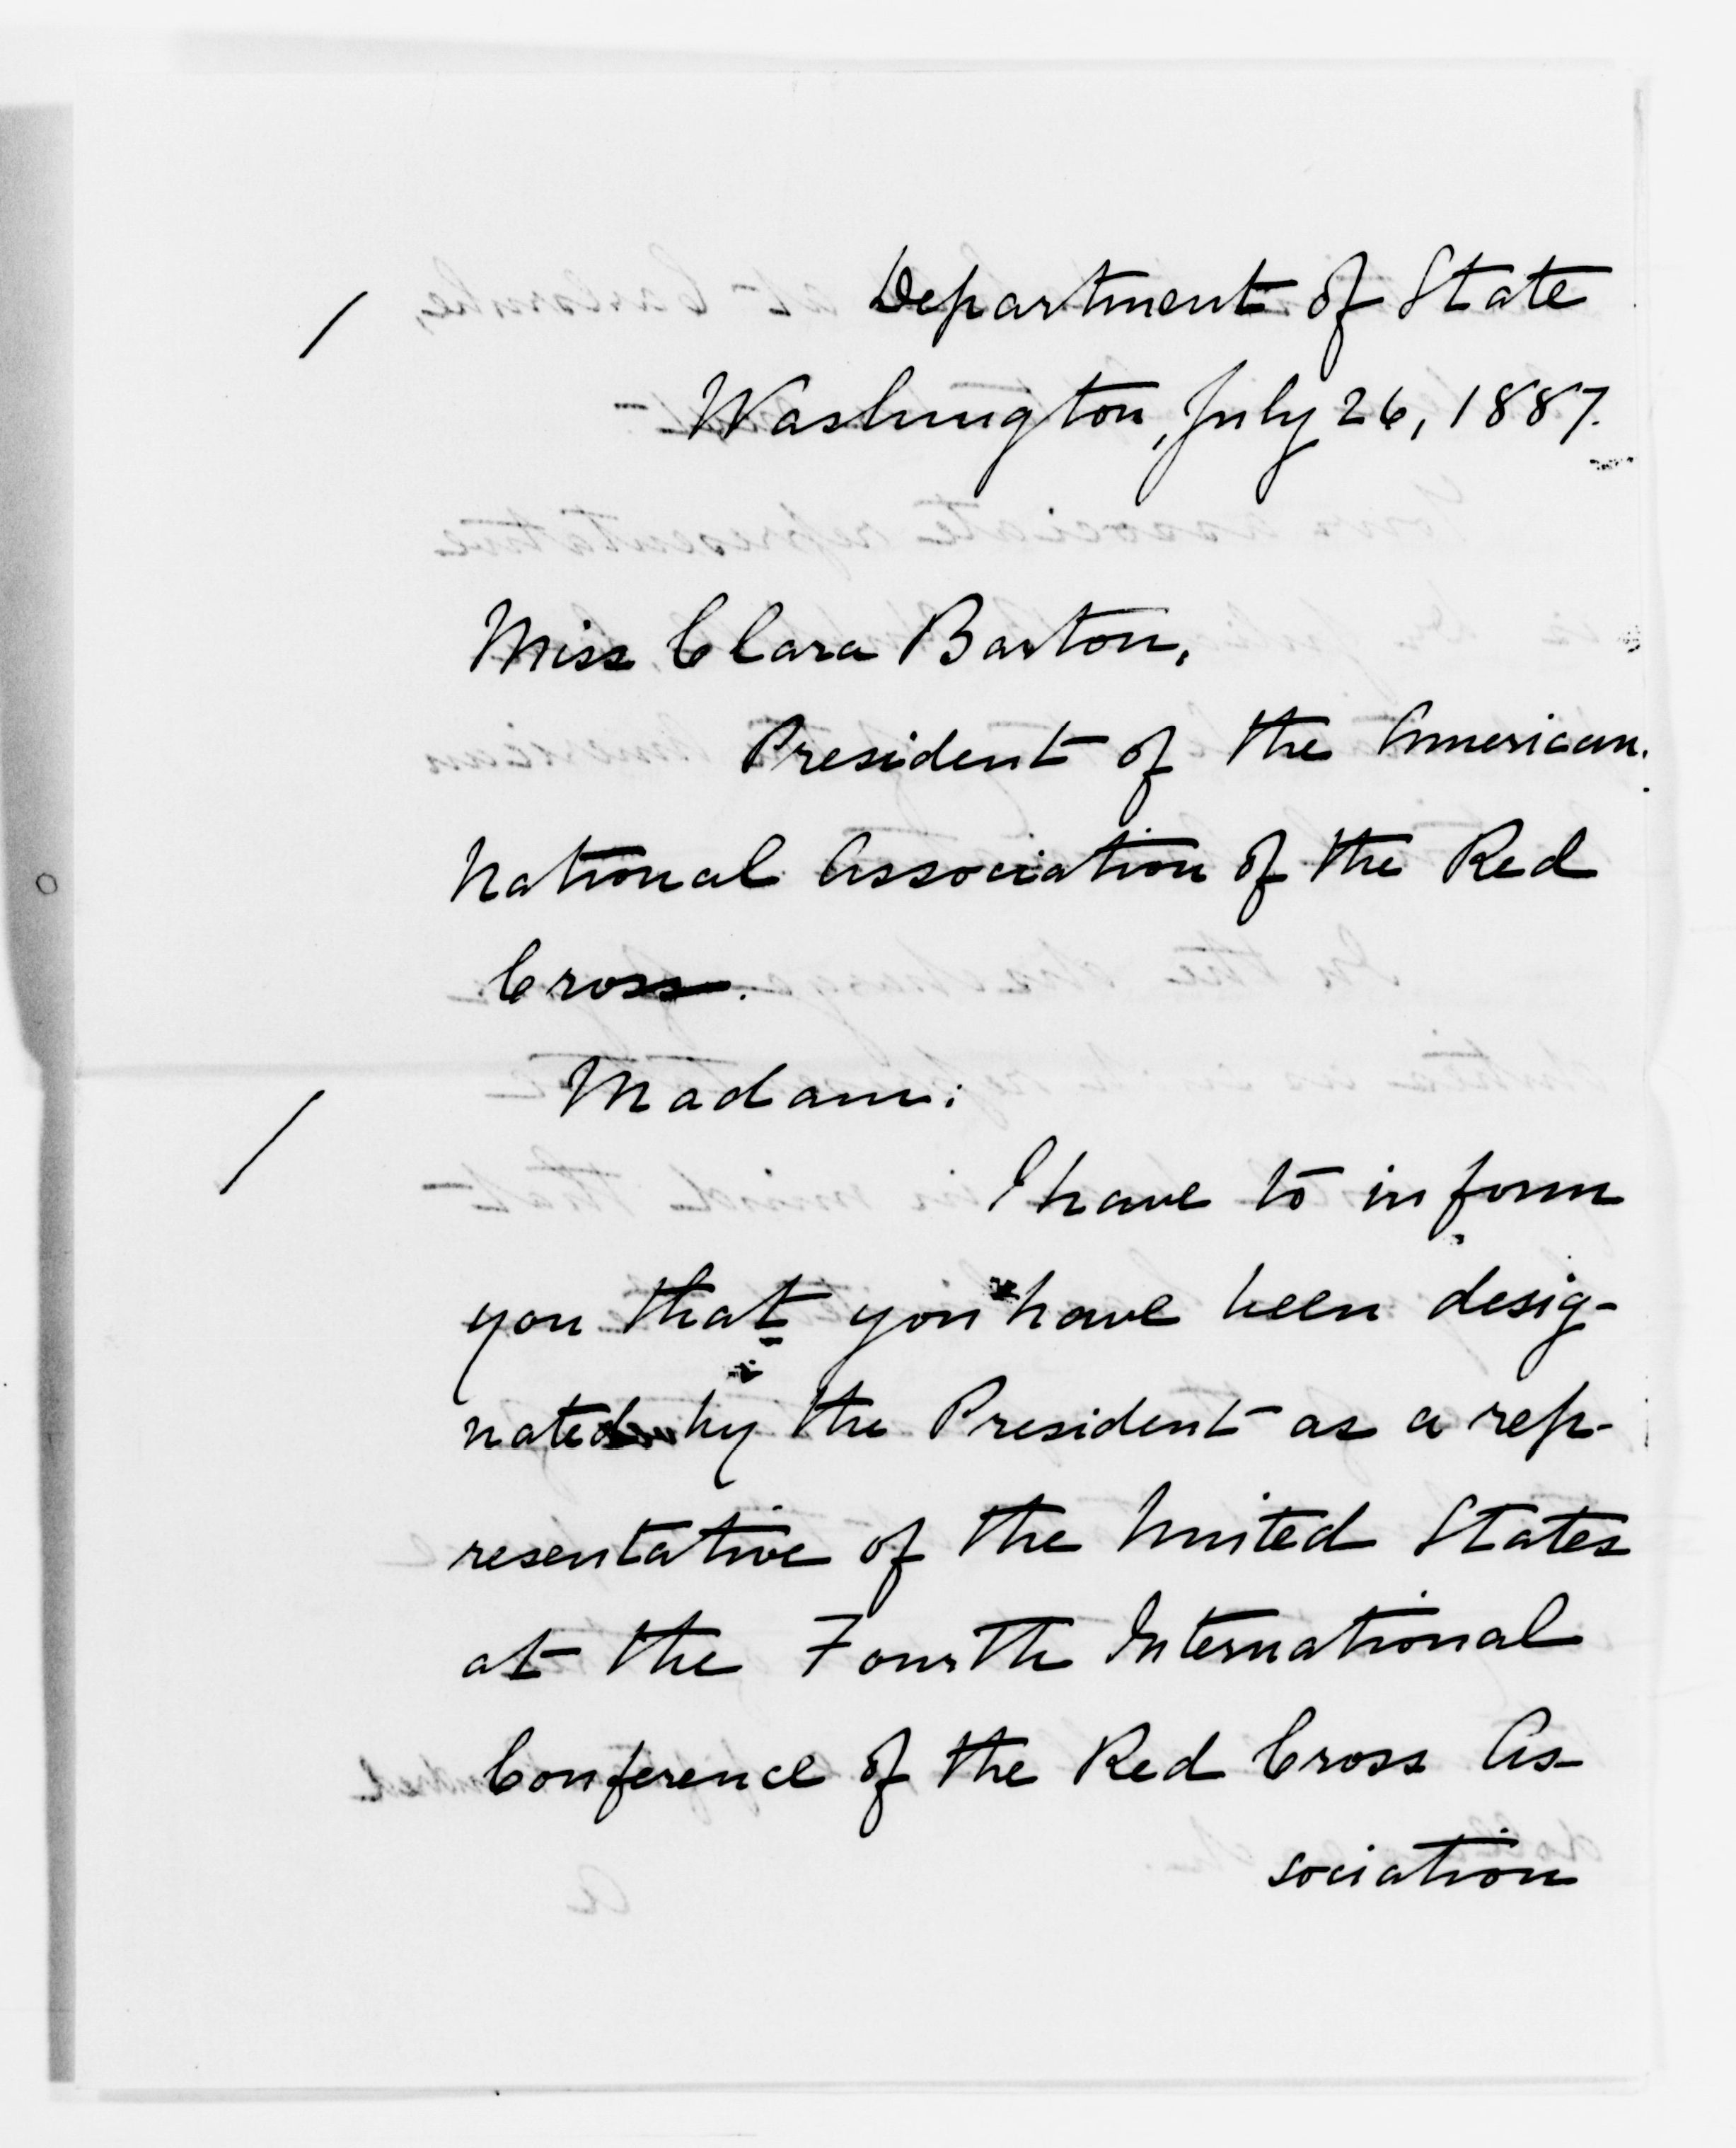 Department of State
Washington, July 26, 1887.
Miss Clara Barton,
President of the American
National Association of the Red
Cross.
Madam:
I have to inform
you that you have been desig-
nated by the President as a rep-
resentative of the United States
at the Fourth International
Conference of the Red Cross As-
sociation